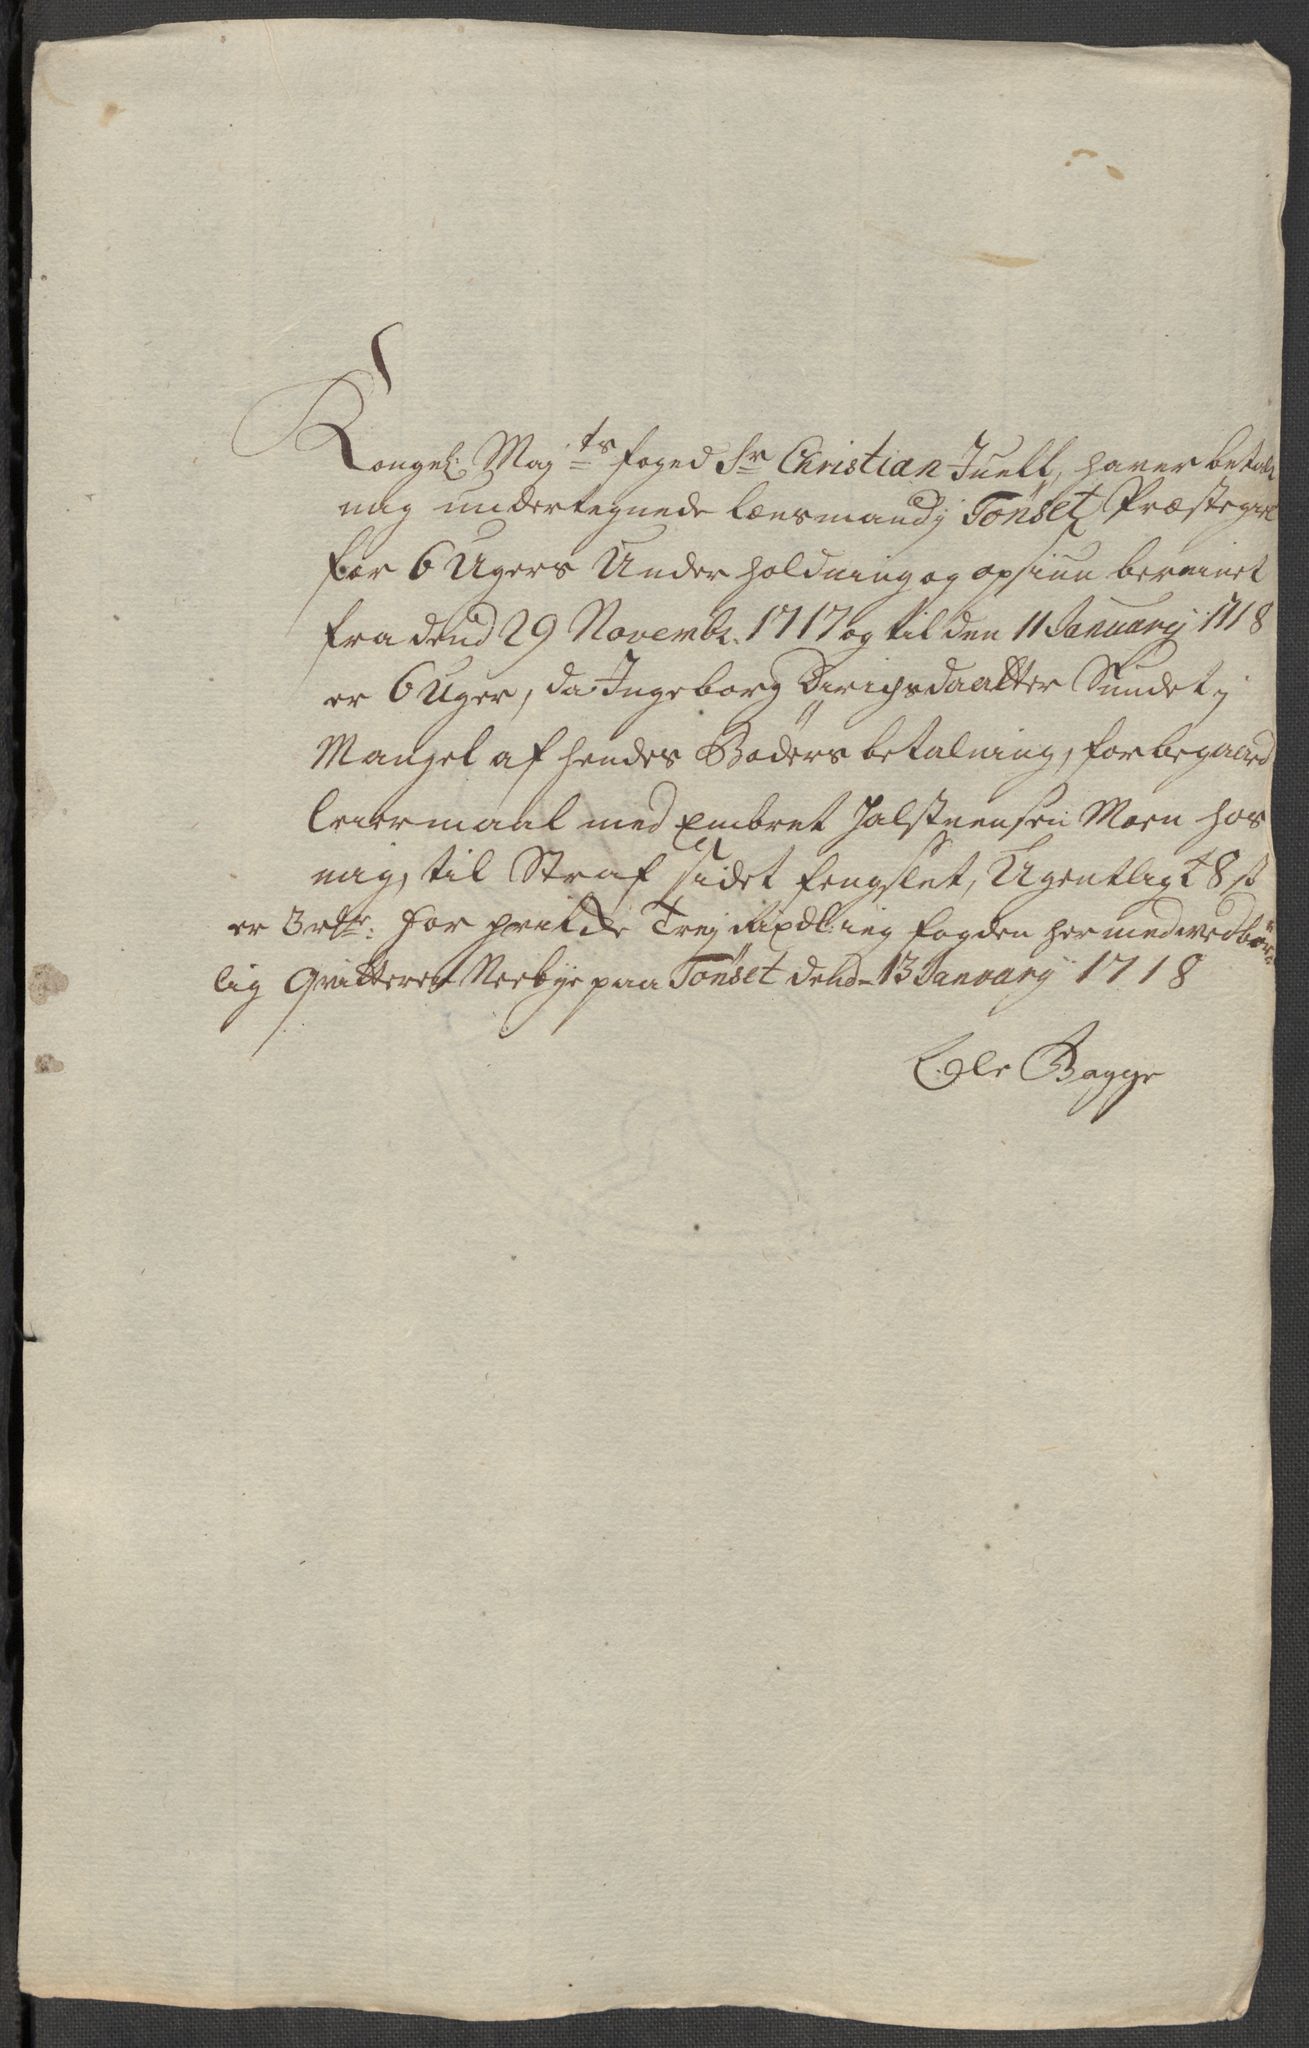 Kongel: Maj:ts foged Sr Christian Juell, haver betalt
mig undertegnede lænsmand j Tönset Præstegiel
for 6 Ugers Underholdning og opsiun bereinet
fra dend 29 Novembr. 1717 og til den 11 Januarij 1718
er 6 Uger, da Ingeborg Dirichsdaatter Sundet j
Mangel af hendes Böders betalning, for begaaed
leiermaal med Embret Halsteensen Moen hos
mig, til Straf sidet fengslet, Ugentligt 8 st
er 3 rdr: for hvilde Trej Rixdl: ieg fogden hermed vedbör
lig Qvitterer Neebye paa Tönset dend 13 Januarij 1718
Ole Bagge